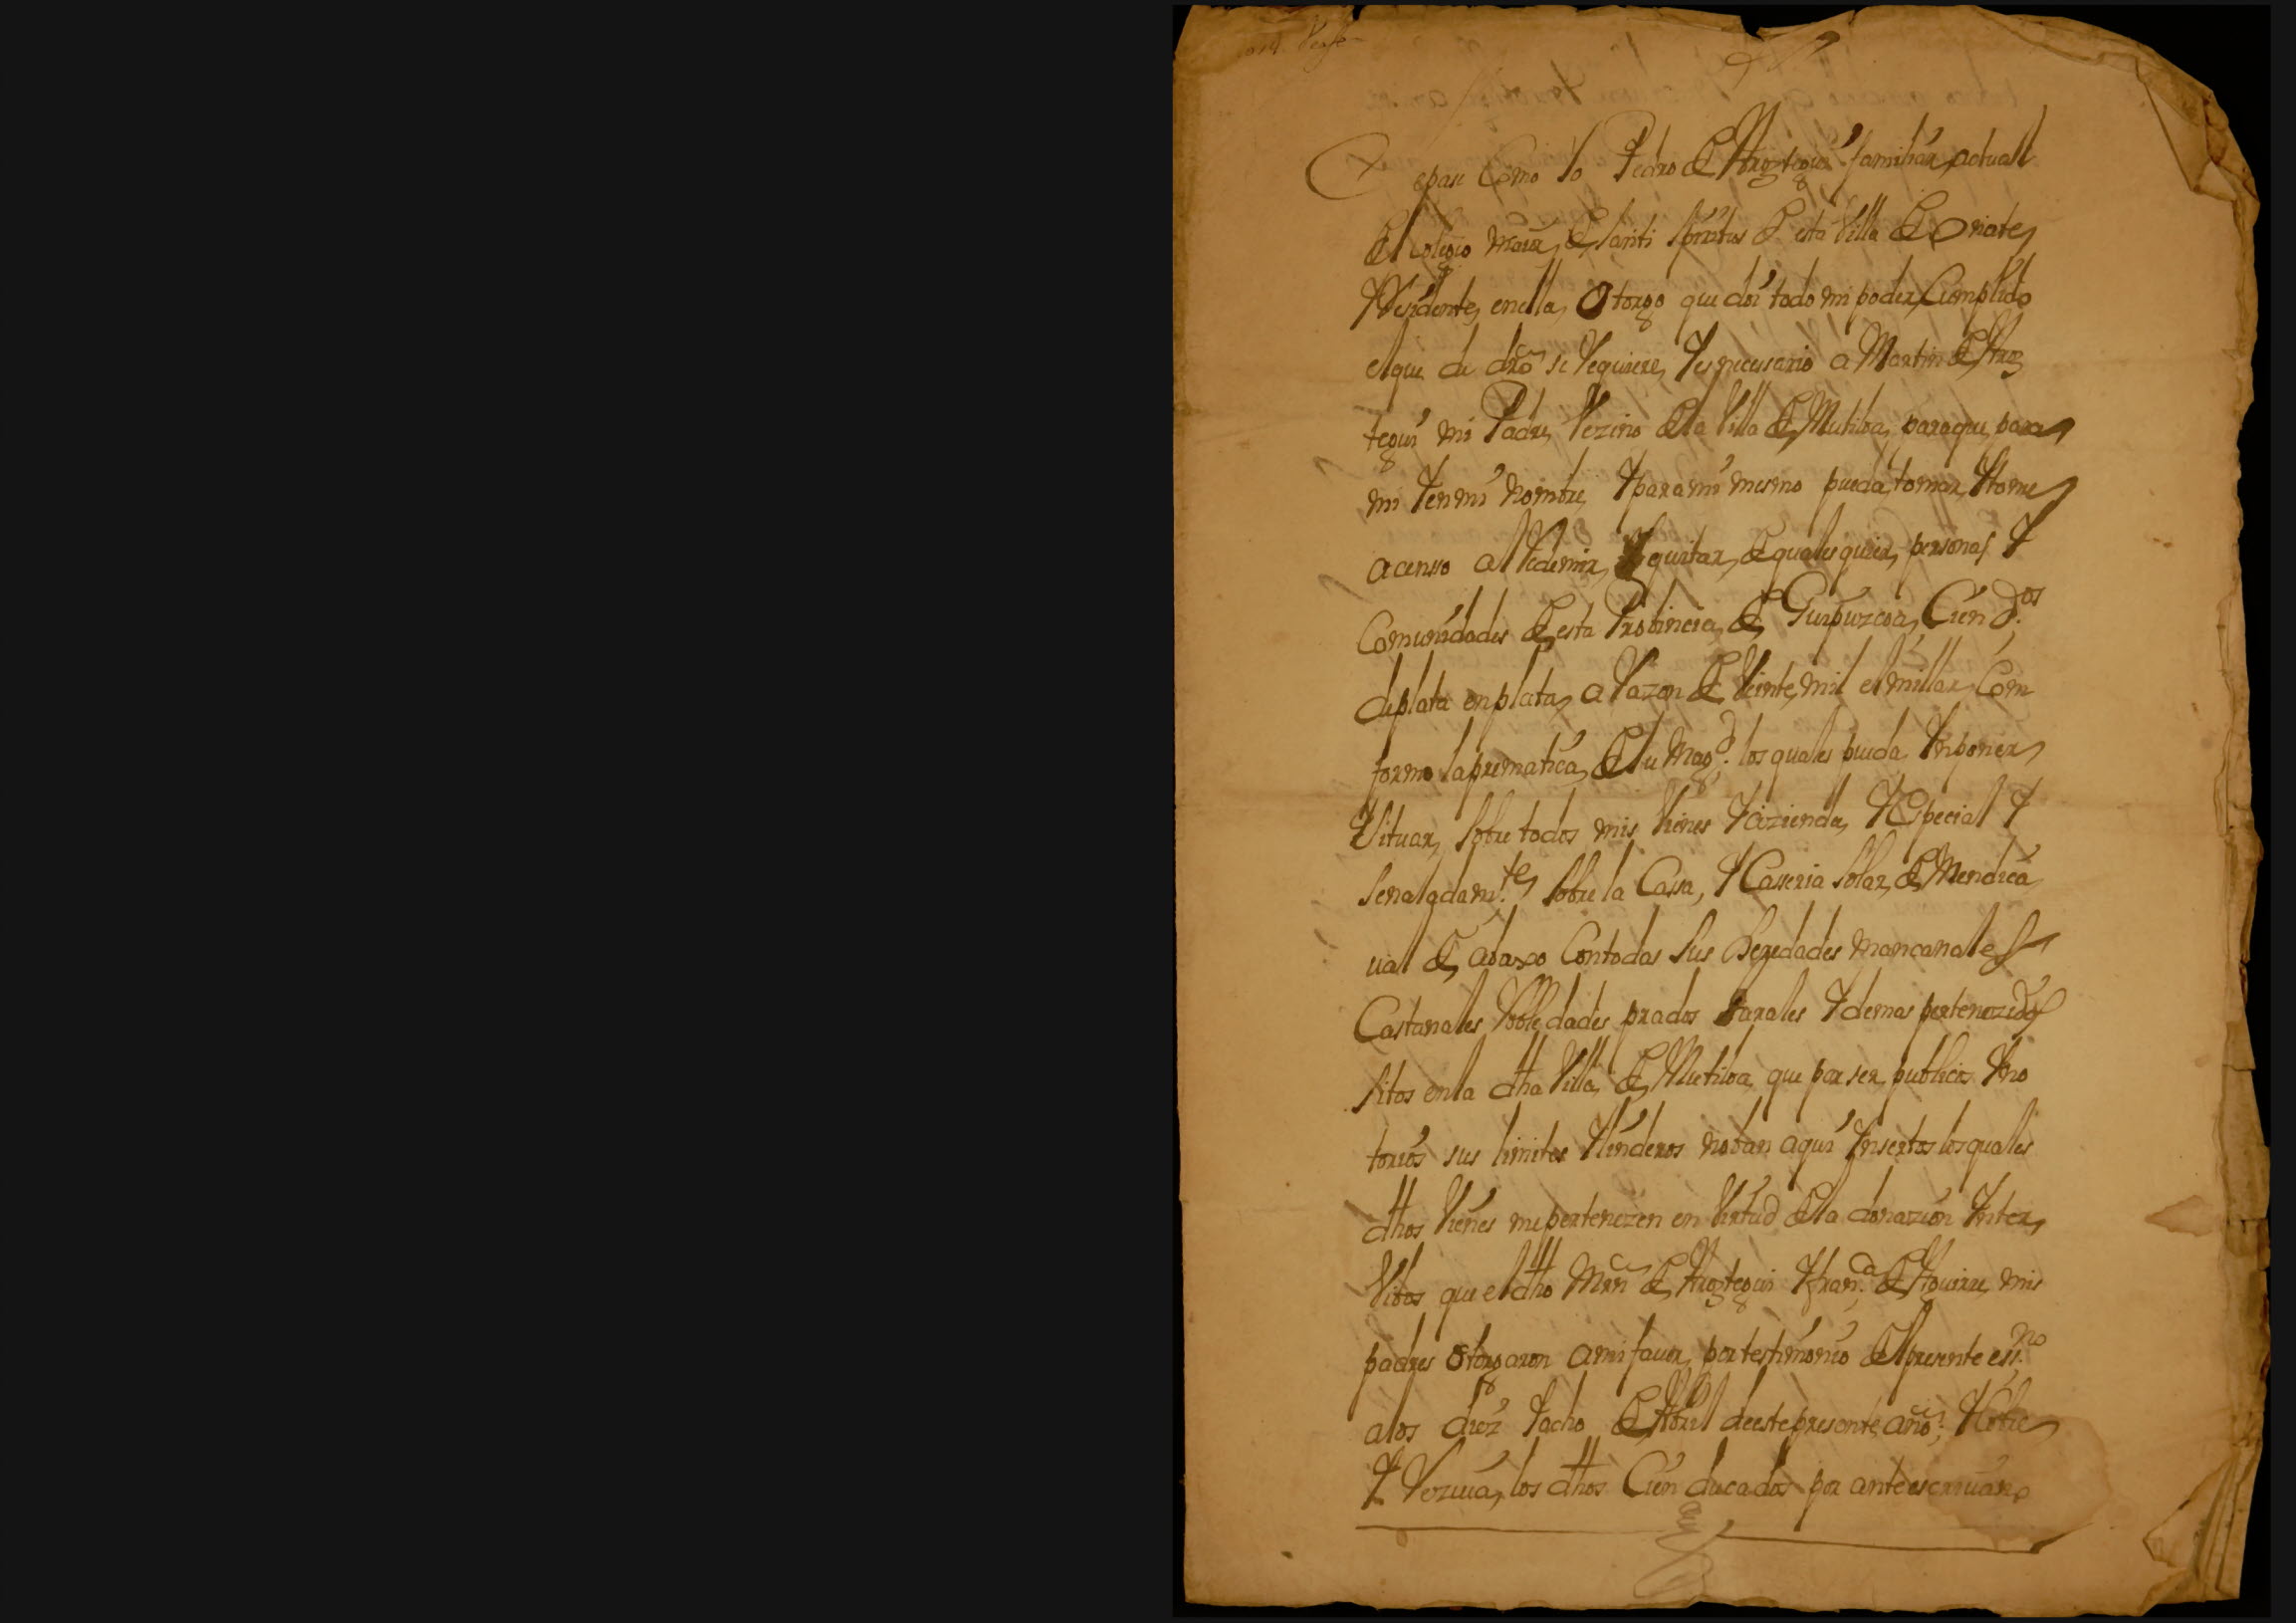 Sepase Como Yo Pedro de Aroztegui familiar actual
del Colegio maior de Santi Spiritus de esta Villa de Oñate
Residente en ella, Otorgo que doi todo mi poder Cumplido
el que de dro se requiere, Y es necessario a Martin de Aroz
tegui mi Padre Vezino de la Villa de Mutiloa, para que para
mi Y en mi nombre Y para mi mismo pueda tomar Y tome
a censso al redemir, Y quitar, de quales quier personas Y
Comunidades de esta Probincia de Guipuzcoa, Cien d.os
de plata en plata, a razon de Veinte mil el millar, Con
forme la prematica de su Mag.d los quales pueda Ynponer
Y Situar, Sobre todos mis Vienes Y azienda, Y Especial Y
Senaladam.te Sobre la Cassa, Y Casseria Solar de Mendica
ual de abaxo Con todas Sus Heredades mancanales
Castanales Robledades prados Xarales Y demas pertenezidos
Sitos en la dha Villa de Mutiloa, que por ser publicos Y no
torios sus limites Y linderos no ban aqui Ynsertos los quales
dhos Vienes me pertenezen en Virtud de la donazion Ynter
Vibos que el dho Mrn de Aroztegui Y fran.ca de Aguirre mis
padres otorgaron a mi fauor, por testimonio del presente ess.no
a los diez Y ocho de Abril de este presente año; Y Cobre
Y Reziua, los dhos Cien ducados por ante escriuano